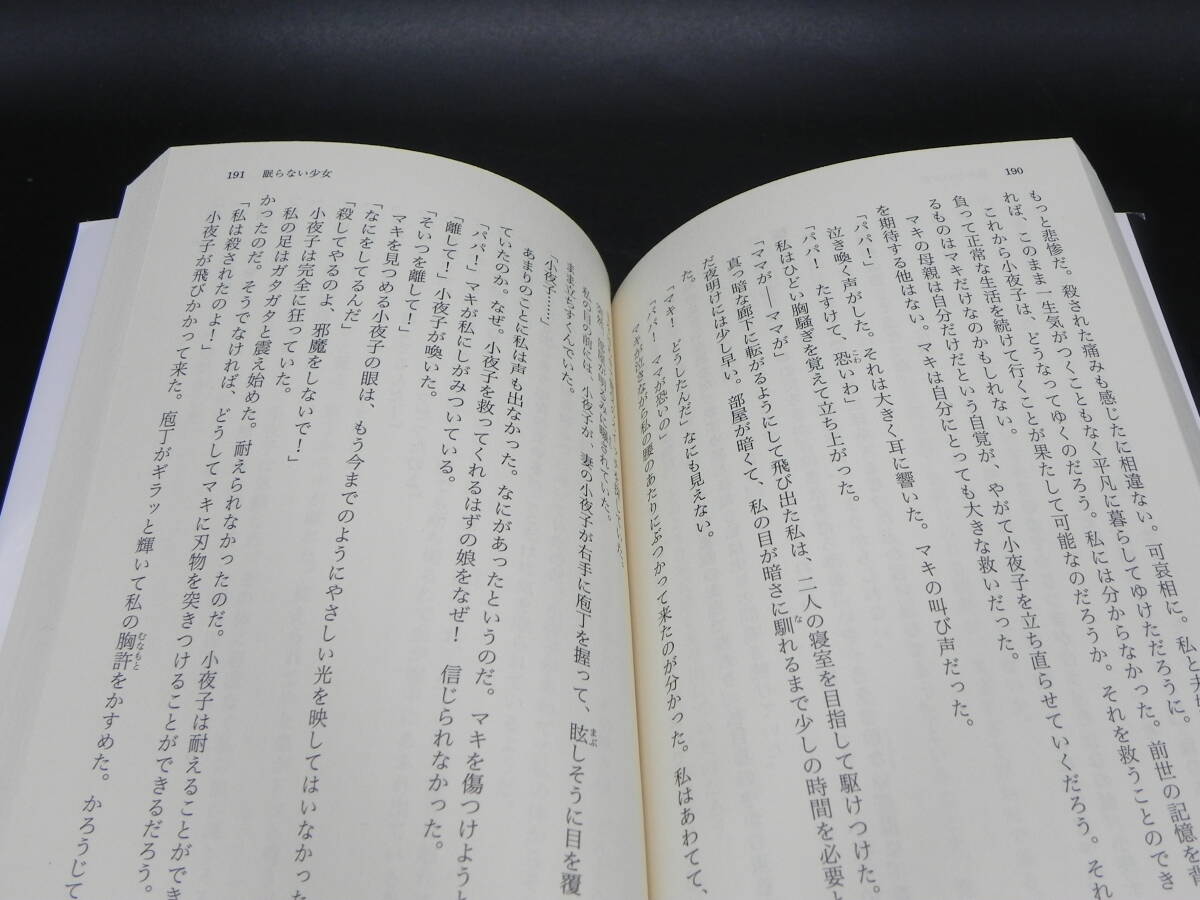 190
もっと悲惨だ。殺された痛みも感じたに相違ない。可哀相に。私と
れば、このまま一生気がつくこともなく平凡に暮らしてゆけただろうに。
これから小夜子は、どうなってゆくのだろう。私には分からなかった。前世の記憶を背
負って正常な生活を続けて行くことが果たして可能なのだろうか。それを救うことのでき
るものはマキだけなのかもしれない。
マキの母親は自分だけだという自覚が、やがて小夜子を立ち直らせていくだろう。それ
を期待する他はない。マキは自分にとっても大きな救いだった。
「パパ！」
泣き喚く声がした。それは大きく耳に響いた。マキの叫び声だった。
「パパ！　たすけて、恐いわ」
私はひどい胸騒ぎを覚えて立ち上がった。
「ママが――ママが」
真っ暗な廊下に転がるようにして飛び出た私は、二人の寝室を目指して駆けつけた。
だ夜明けには少し早い。部屋が暗くて、私の目が暗さに馴れるまで少しの時間を必要と
た。
「マキ！　どうしたんだ」なにも見えない。
「パパ！　ママが恐いの」
マキが泣きながら私の腰のあたりにぶつかって来たのが分かった。私はあわてて、
191　眠らない少女
私の目の前には、小夜子が、妻の小夜子が右手に庖丁を握って、眩しそうに目を覆
ままたちすくんでいた。
「小夜子……」
あまりのことに私は声も出なかった。なにがあったというのだ。マキを傷つけようと
ていたのか。なぜ。小夜子を救ってくれるはずの娘をなぜ！　信じられなかった。
「パパ！」マキが私にしがみついている。
「離して！」小夜子が喚いた。
「そいつを離して！」
マキを見つめる小夜子の眼は、もう今までのようにやさしい光を映してはいなかっ
「なにをしてるんだ」
「殺してやるのよ、邪魔をしないで！」
小夜子は完全に狂っていた。
私の足はガタガタと震え始めた。耐えられなかったのだ。小夜子は耐えることができ
かったのだ。そうでなければ、どうしてマキに刃物を突きつけることができるだろう。
「私は殺されたのよ！」
小夜子が飛びかかって来た。庖丁がギラッと輝いて私の胸許をかすめた。かろうじて